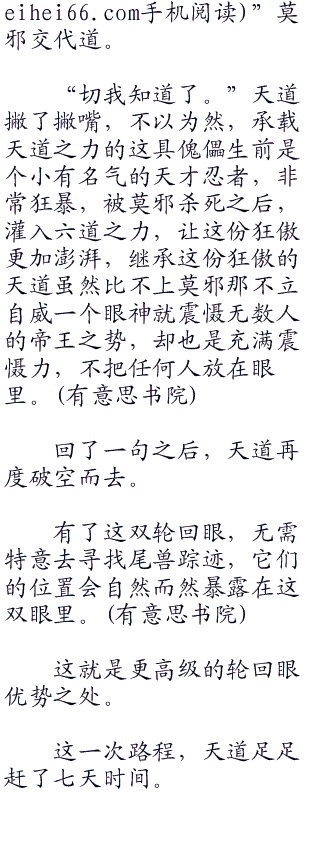 eihei66.com手机阅读)”莫
邪交代道。
“切我知道了。”天道
撇了撇嘴，不以为然，承载
天道之力的这具傀儡生前是
个小有名气的天才忍者，非
常狂暴，被莫邪杀死之后，
灌入六道之力，让这份狂傲
更加澎湃，继承这份狂傲的
天道虽然比不上莫邪那不立
自威一个眼神就震慑无数人
的帝王之势，却也是充满震
慑力，不把任何人放在眼
里。(有意思书院)
回了一句之后，天道再
度破空而去。
有了这双轮回眼，无需
特意去寻找尾兽踪迹，它们
的位置会自然而然暴露在这
双眼里。(有意思书院)
这就是更高级的轮回眼
优势之处。
这一次路程，天道足足
赶了七天时间。